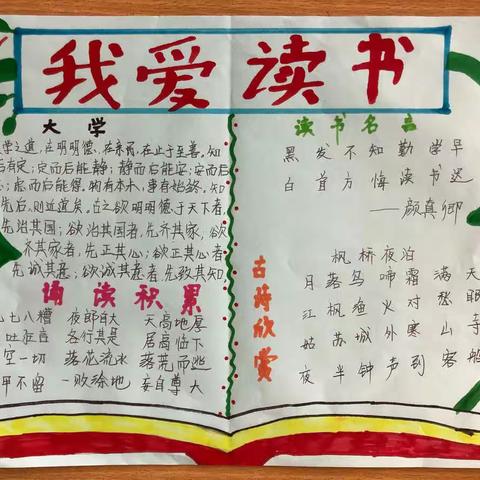 我爱读书
大学
学之道,在明明德,在亲民,在止于至善。知
后有定;定而后能静;静而后能安;安而后
虑而后能得。物有本末,事有始终。知
先后,则近道矣。古之欲明明德于天下者,
先治其国;欲治其国者,先齐其家,欲
齐其家者,先正其心;欲正其心者
先诚其意;欲诚其意者,先致其知
诵读积累
七八糟 夜郎自大 天高地厚
吐狂言 各行其是 居高临下
空一切 落花流水 落荒而逃
甲不留 一败涂地 妄自尊大
读书名言
黑发不知勤学早
白首方悔读书迟
——颜真卿
古诗欣赏
枫桥夜泊
月落乌啼霜满天
江枫渔火对愁眠
姑苏城外寒山寺
夜半钟声到客船